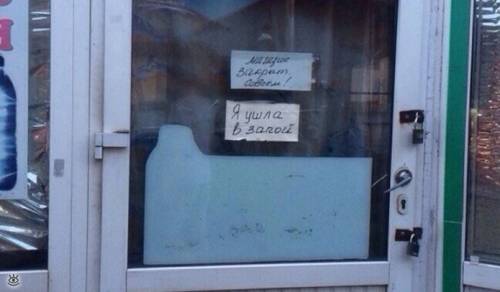 Магазин
закрыт
совсем!
Я ушла
в запой